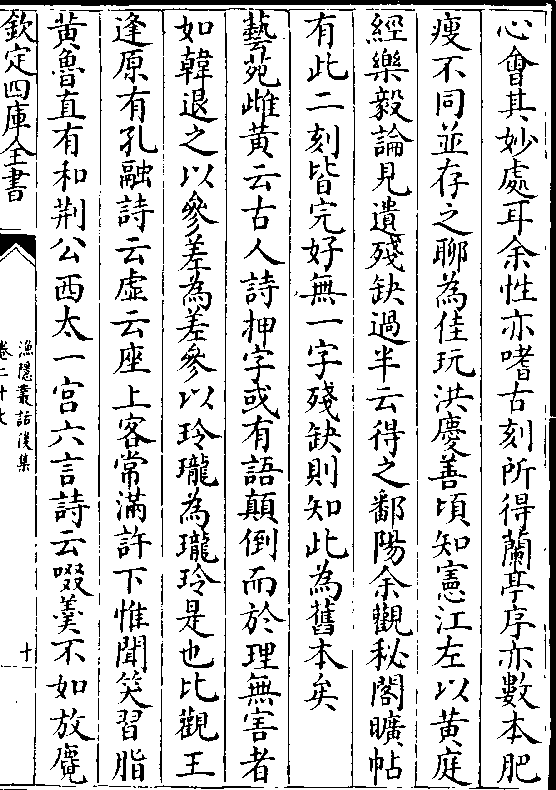 心㑹其妙處耳余性亦嗜古刻所得蘭亭序亦數本肥
瘦不同並存之聊為佳玩洪慶善頃知憲江左以黄庭
經樂毅論見遺殘缺過半云得之鄱陽余觀秘閣曠帖
有此二刻皆完好無一字殘缺則知此為舊本矣
藝苑雌黄云古人詩押字或有語顛倒而於理無害者
如韓退之以參差為差參以玲瓏為瓏玲是也比觀王
逢原有孔融詩云虚云座上客常滿許下惟聞笑習脂
黄魯直有和荆公西太一宫六言詩云啜羮不如放麑
欽定四庫全書
漁隱叢話後集
卷二十
十